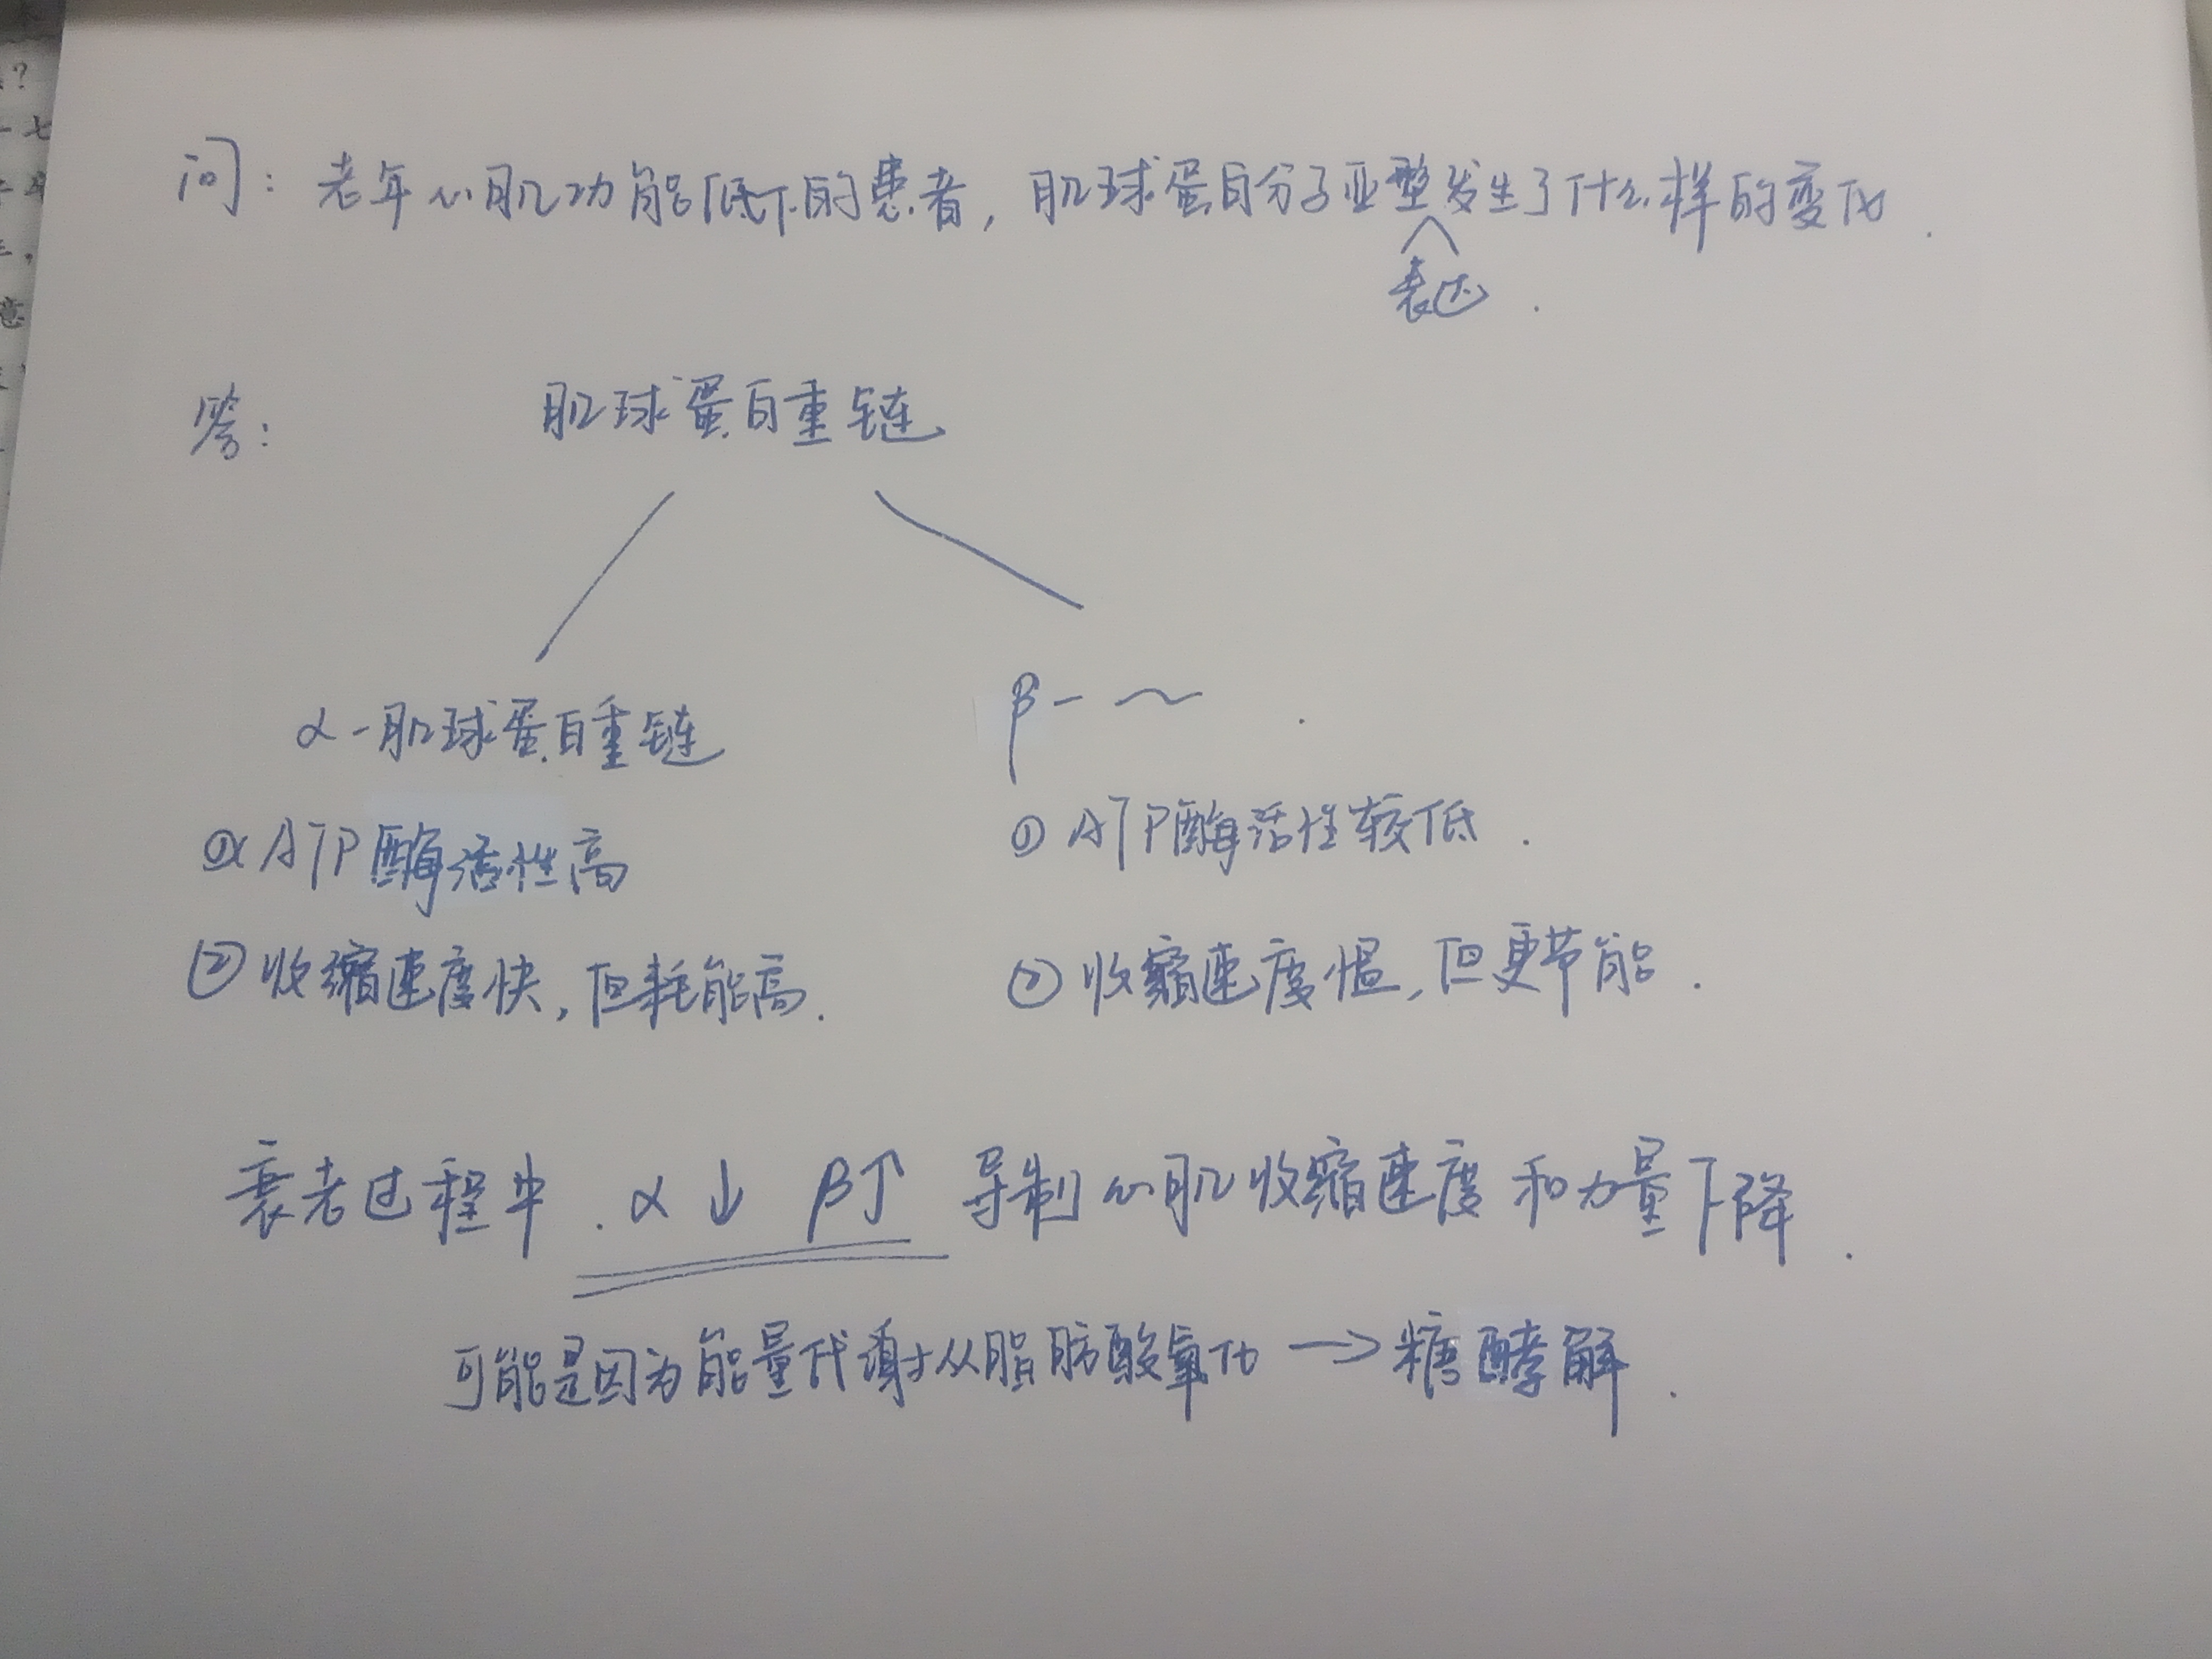 问：老年心肌功能低下的患者，肌球蛋白分子亚型表达发生了什么样的变化．
答：
肌球蛋白重链
α－肌球蛋白重链
β－～
① ATP酶活性高
① ATP酶活性较低．
② 收缩速度快，但耗能高．
② 收缩速度慢，但更节能．
衰老过程中．α↓ β↑ 导制心肌收缩速度和力量下降．
可能是因为能量代谢从脂肪酸氧化→糖酵解．